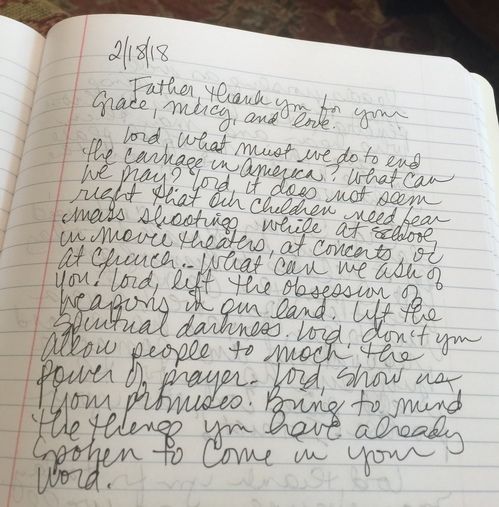 2/18/18
Father thank you for your
Grace, mercy, and love.
Lord, what must we do to end
the carnage in America? What can
we pray? Lord it does not seem
right that our children need fear
mass shootings while at school
in movie theaters, at concerts or
at church. What can we ask of
you. Lord, lift the obsession of
weapons in our land. Lift the
Spiritual darkness. Lord, don't you
allow people to mock the
power of prayer. Lord show us
your promises. Bring to mind
the things you have already
spoken to come in your
word.